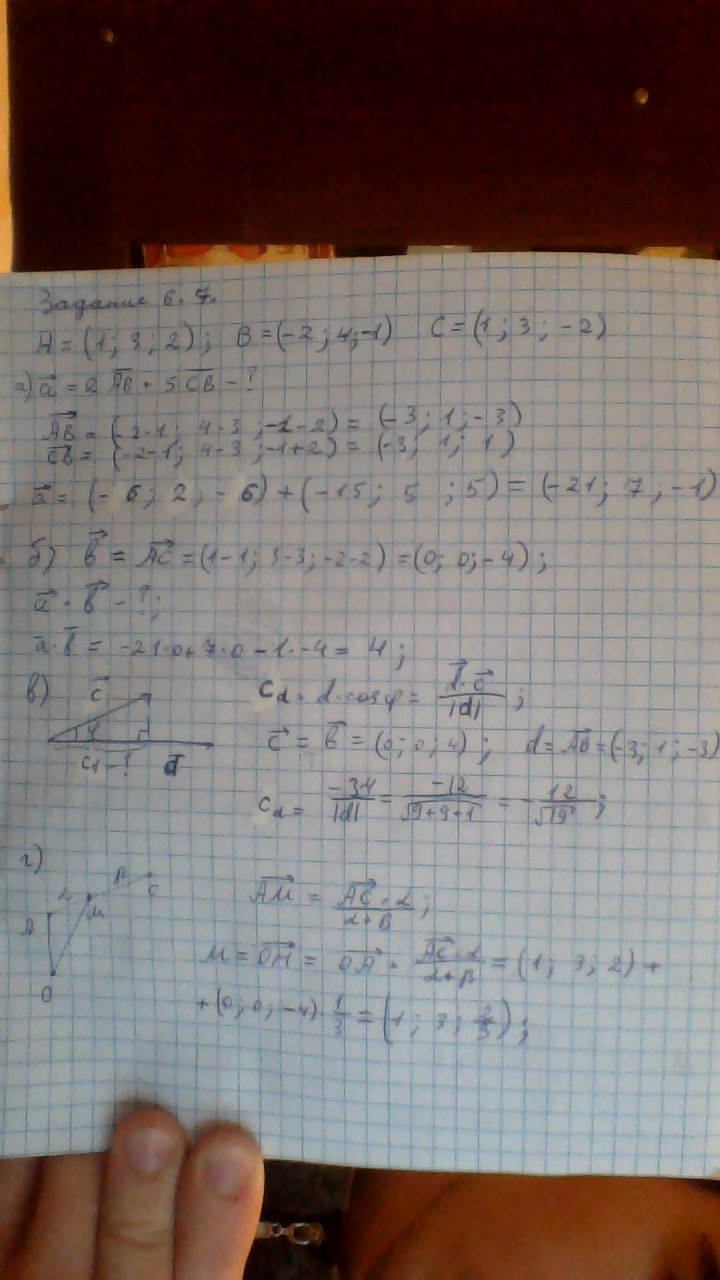 Задание 6.7.
A = (1; 3; 2); B = (-2; 4; -1) C = (1; 3; -2)
а) a⃗ = 2 AB + 5 CB - ?
AB⃗ = (-2-1; 4-3; -1-2) = (-3; 1; -3)
CB⃗ = (-2-1; 4-3; -1+2) = (-3; 1; 1)
a⃗ = (-6; 2; -6) + (-15; 5; 5) = (-21; 7; -1)
б) b⃗ = AC⃗ = (1-1; 3-3; -2-2) = (0; 0; -4);
a⃗ · b⃗ - ?;
a⃗ · b⃗ = -21·0+7·0-1·-4 = 4;
в) c⃗ φ c_d - ? d⃗
c_d = d·cosφ = d⃗·c⃗/|d|;
c⃗ = b⃗ = (0; 0; 4); d = AB⃗ = (-3; 1; -3)
= -12/√9+9+1 = -12/√19;
г) A α M β C O
AM⃗ = AC⃗·α/α+β;
M = OM⃗ = OA⃗ + AC⃗·α/α+β = (1; 3; 2) +
+ (0; 0; -4)·1/3 = (1; 3; 2/3);